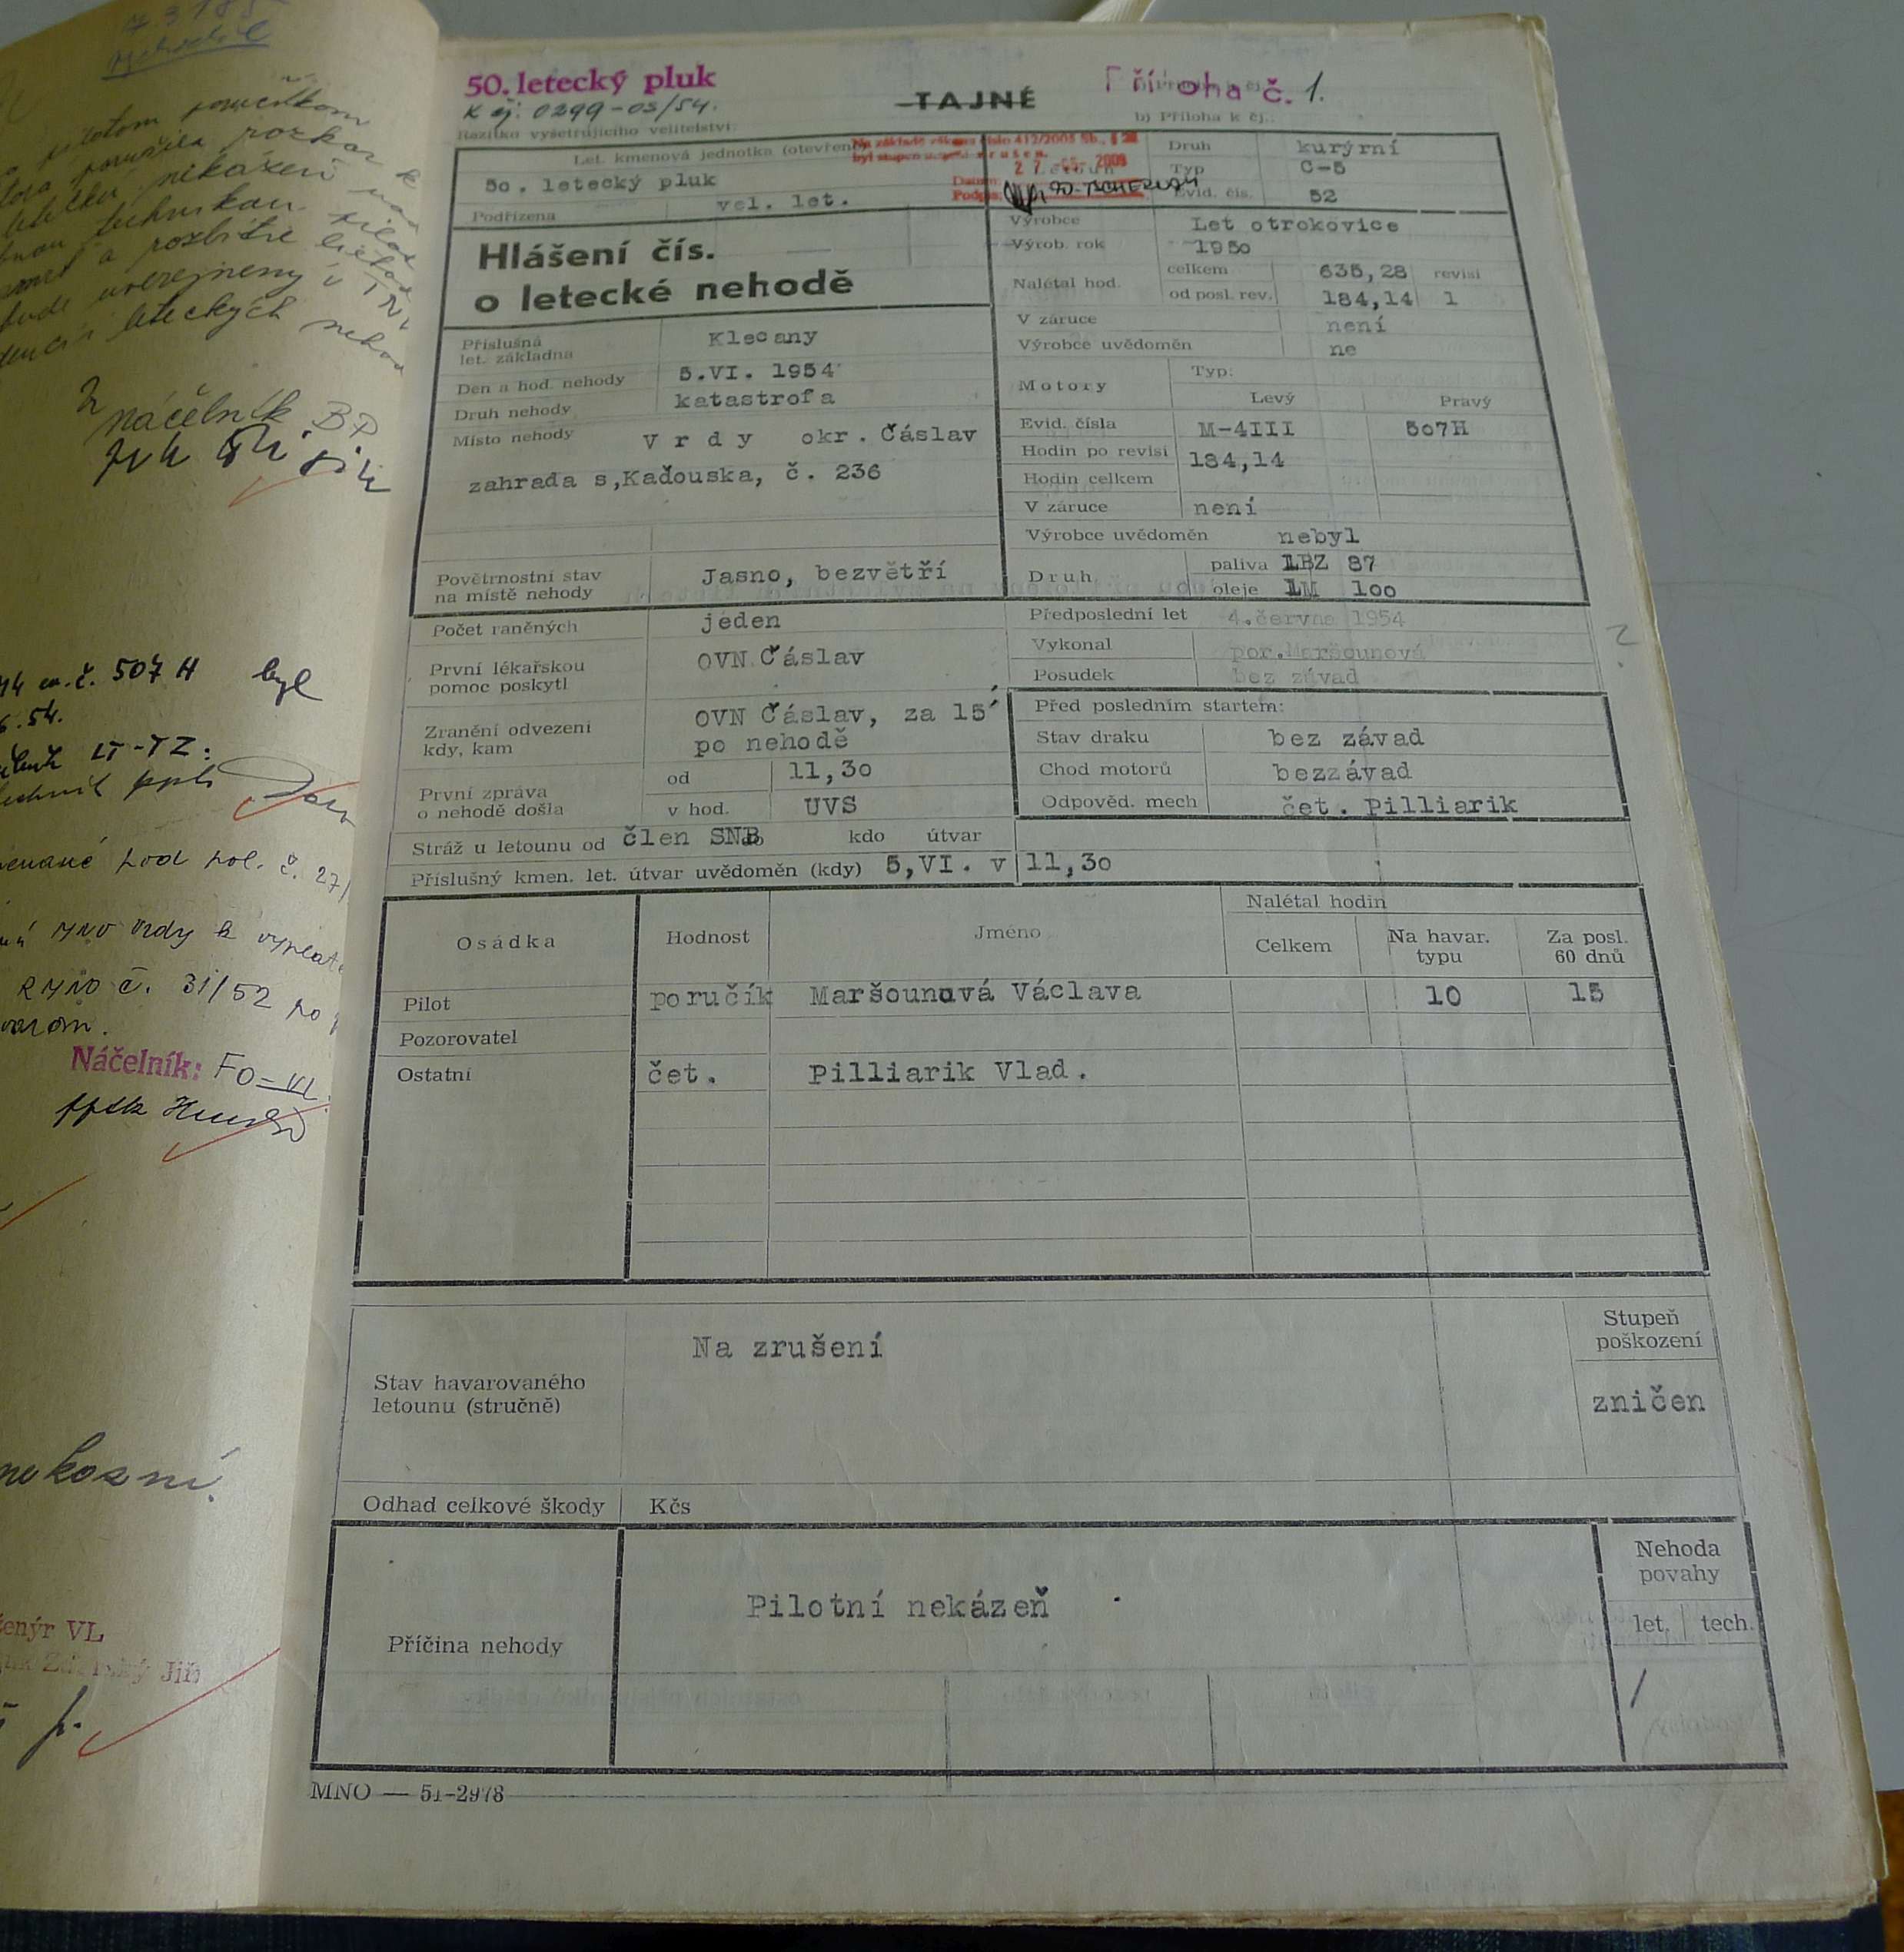 50. letecký pluk
K čj: 0299-03/54.
TAJNÉ
Příloha č. 1.
Razítko vyšetřujícího velitelství:
b) Příloha k čj.:
Let. kmenová jednotka (otevřeně)
50. letecký pluk
Podřízena vel. let.
Na základě zákona číslo 412/2005 Sb., §
byl stupeň utajení zrušen.
Datum: 2 7 -05- 2008
Podpis:
Druh kurýrní
Typ C-5
Evid. čís. 52
Hlášení čís.
o letecké nehodě
Výrobce Let otrokovice
Výrob. rok 1950
Nalétal hod. celkem 635,28 revisí
od posl. rev. 184,14 1
V záruce není
Výrobce uvědoměn ne
Příslušná
let. základna Klecany
Den a hod. nehody 5.VI. 1954
Druh nehody katastrofa
Místo nehody V r d y okr. Čáslav
zahrada s,Kaďouska, č. 236
Motory Typ:
Levý Pravý
Evid. čísla M-4III 507H
Hodin po revisi 184,14
Hodin celkem
V záruce není
Výrobce uvědoměn nebyl
Druh paliva LBZ 87
oleje LM 100
Povětrnostní stav
na místě nehody Jasno, bezvětří
Počet raněných jeden
První lékařskou
pomoc poskytl OVN Čáslav
Zranění odvezeni
kdy, kam OVN Čáslav, za 15´
po nehodě
První zpráva
o nehodě došla od 11,30
v hod. UVS
Předposlední let 4.června 1954
Vykonal por.Maršounová
Posudek bez závad
Před posledním startem:
Stav draku bez závad
Chod motorů bezzávad
Odpověd. mech čet. Pilliarik
Stráž u letounu od člen SNB kdo útvar
Příslušný kmen. let. útvar uvědoměn (kdy) 5,VI. v 11,30
Osádka Hodnost Jméno Nalétal hodin
Celkem Na havar. typu Za posl. 60 dnů
Pilot poručík Maršounová Václava 10 15
Pozorovatel
Ostatní čet. Pilliarik Vlad.
Stav havarovaného
letounu (stručně) Na zrušení
Stupeň
poškození
zničen
Odhad celkové škody Kčs
Příčina nehody Pilotní nekázeň
Nehoda
povahy
let. tech.
/
MNO — 51-2978
náčelník BP
ev. č. 507 H byl
6.54.
LT-TZ:
pod pol. č. 27/
Vrdy k
č. 31/52 po
Náčelník: FO-VL
pplk
VL
Jiří